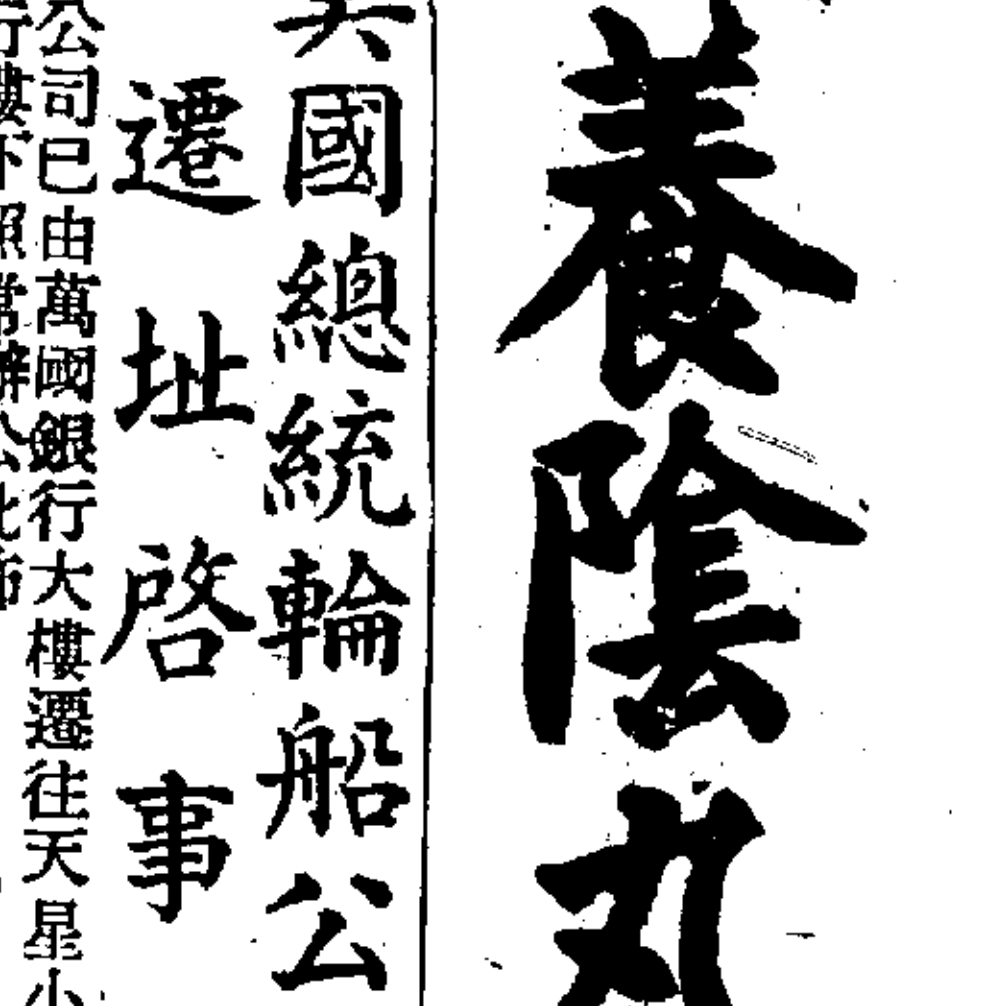 養陰丸
國總統輪船公
遷址啓事
公司已由萬國銀行大樓遷往天星小
行樓下照常辦公此佈